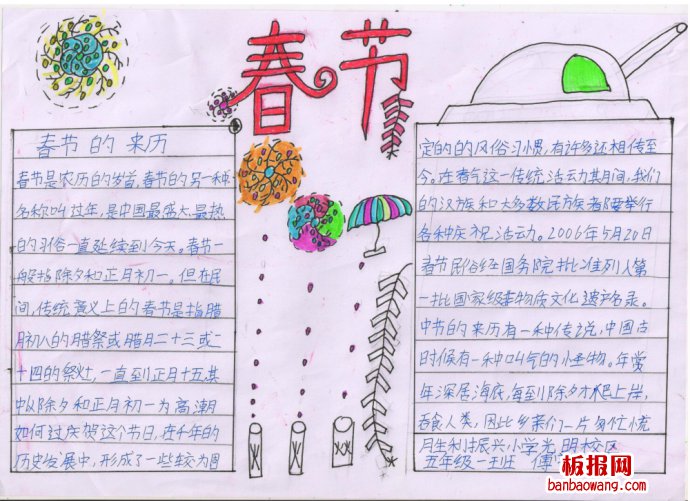 春节
春节的来历
春节是农历的岁首,春节的另一种
名称叫过年,是中国最盛大、最热
的习俗一直延续到今天。春节一
般指除夕和正月初一。但在民
间,传统意义上的春节是指腊
月初八的腊祭或腊月二十三或二
十四的祭灶,一直到正月十五,其
中以除夕和正月初一为高潮
如何过庆贺这个节日,在千年的
历史发展中,形成了一些较为固
定的的风俗习惯,有许多还相传至
今。在春节这一传统活动其月间,我们
的汉族和大多数民族者都要举行
各种庆祝活动。2006年5月20日
春节民俗经国务院批准列入第
一批国家级非物质文化遗产名录。
中节的来历有一种传说,中国古
时候有一种叫气的小怪物。年
年深居海底,每到除夕才爬上岸,
吞食人类,因此乡亲们一片匆忙慌
振兴小学光明校区
五年级一班
板报网
banbaowang.com